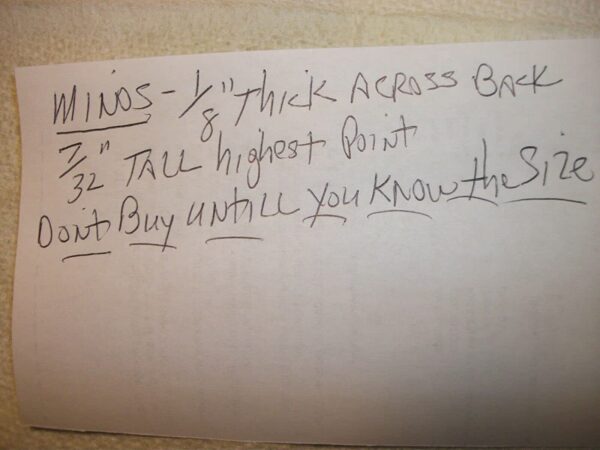 MINDS - 1/8" Thick ACROSS BACK
7/32" TALL highest Point
DON'T Buy UNTILL You KNOW the Size